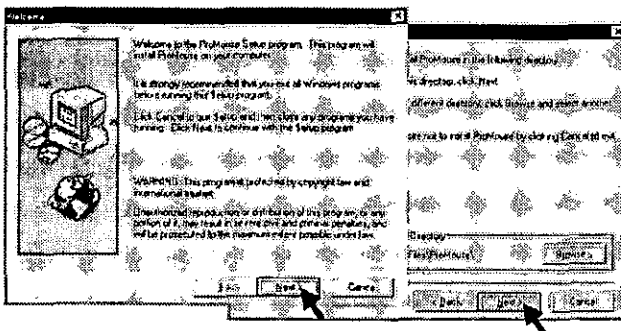 Welcome
Welcome to the ProMouse Setup program. This program will
install ProMouse on your computer.
It is strongly recommended that you exit all Windows programs
before running this Setup program.
Click Cancel to quit Setup and then close any programs you have
running. Click Next to continue with the Setup program.
WARNING: This program is protected by copyright law and
international treaties.
Unauthorized reproduction or distribution of this program, or any
portion of it, may result in severe civil and criminal penalties, and
will be prosecuted to the maximum extent possible under law.
Next >
Cancel
all ProMouse in the following directory.
his directory, click Next.
different directory, click Browse and select another
not to install ProMouse by clicking Cancel to exit
Directory
Files\ProMouse
Browse...
< Back
Next >
Cancel